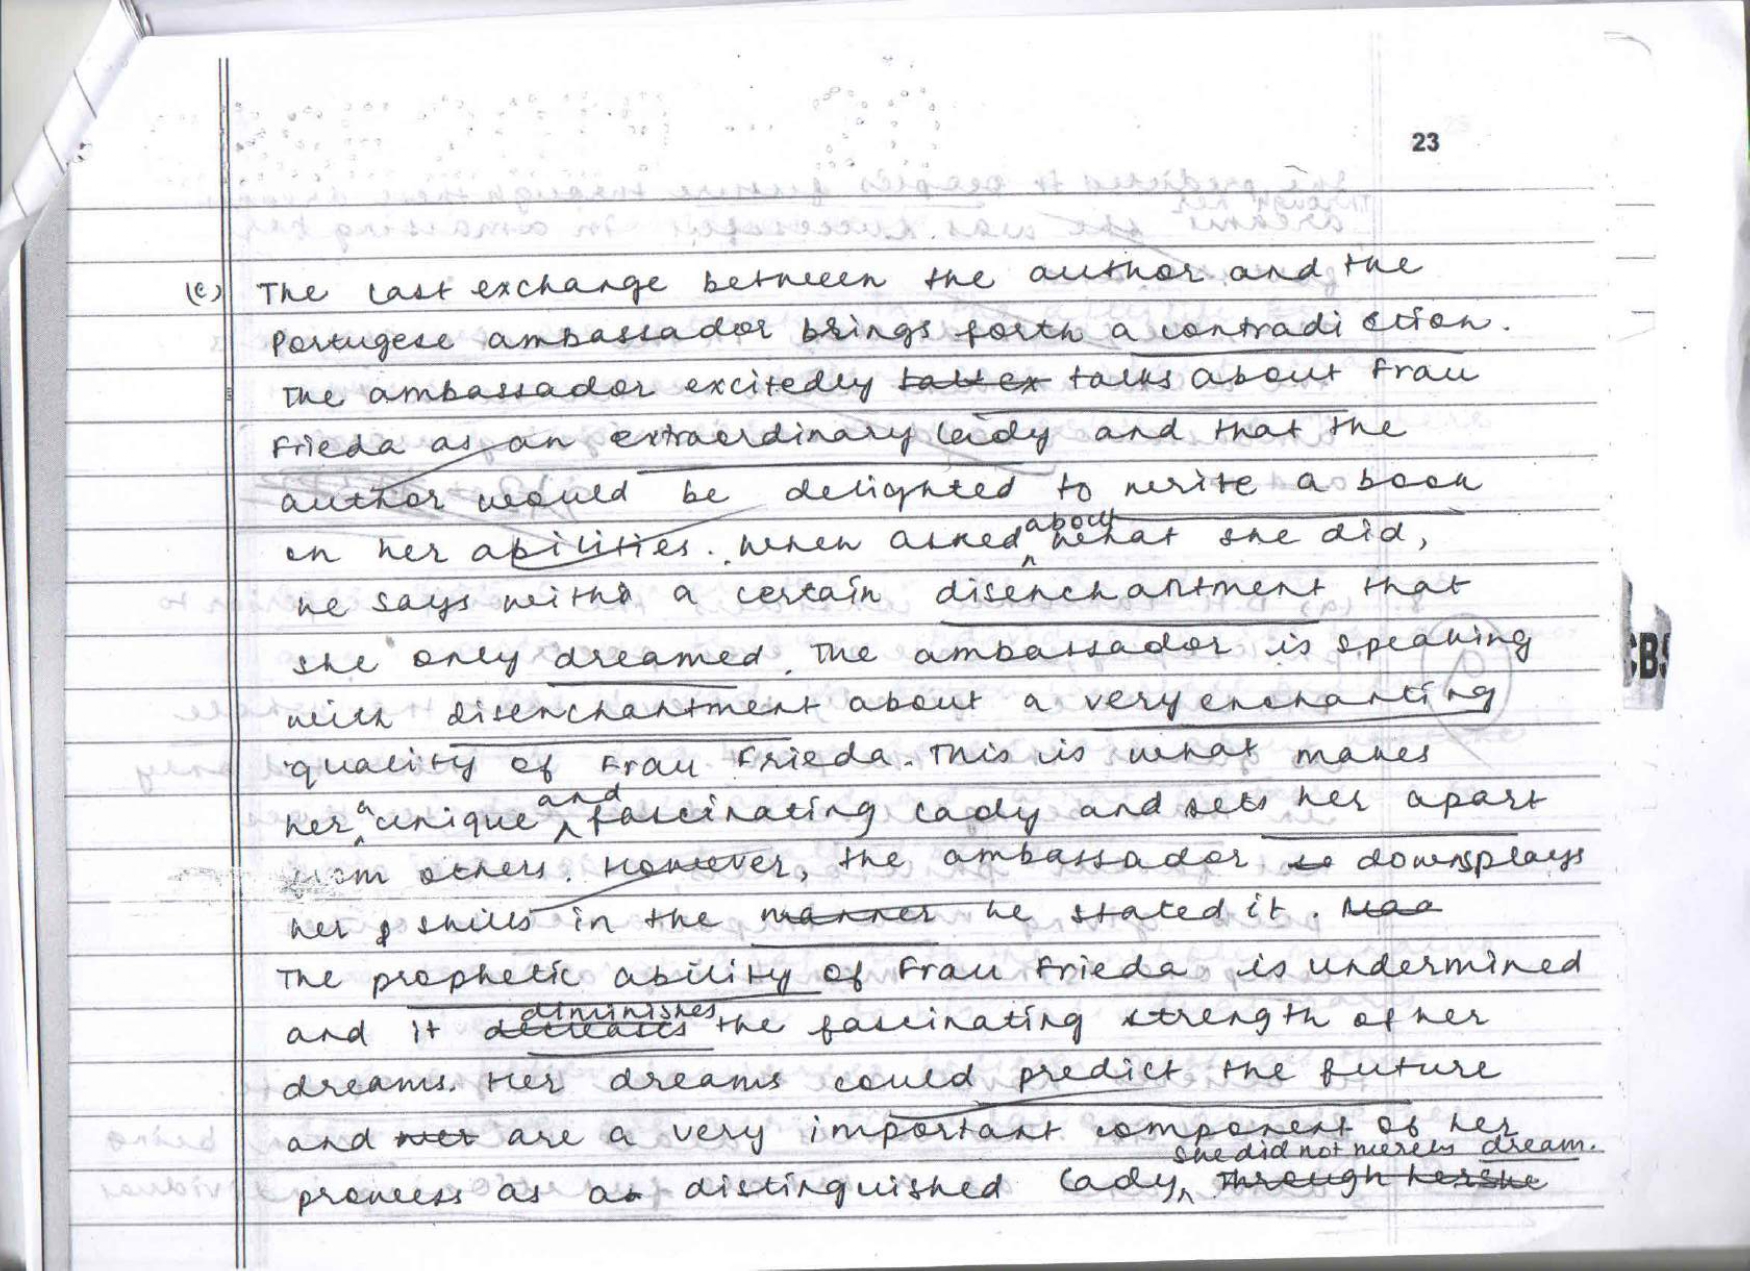 23
(c) The last exchange between the author and the
Portugese ambassador brings forth a contradiction.
The ambassador excitedly talks about Frau
Frieda as an extraordinary lady and that the
author would be delighted to write a book
on her abilities. When asked about what she did,
he says with a certain disenchantment that
she only dreamed. The ambassador is speaking
with disenchantment about a very enchanting
quality of Frau Frieda. This is what makes
her a unique and fascinating lady and sets her apart
from others. However, the ambassador downsplays
her skills in the manner he stated it.
The prophetic ability of Frau Frieda is undermined
and it diminishes the fascinating strength of her
dreams. Her dreams could predict the future
and are a very important component of her
prowess as a distinguished lady, she did not merely dream.
CBS